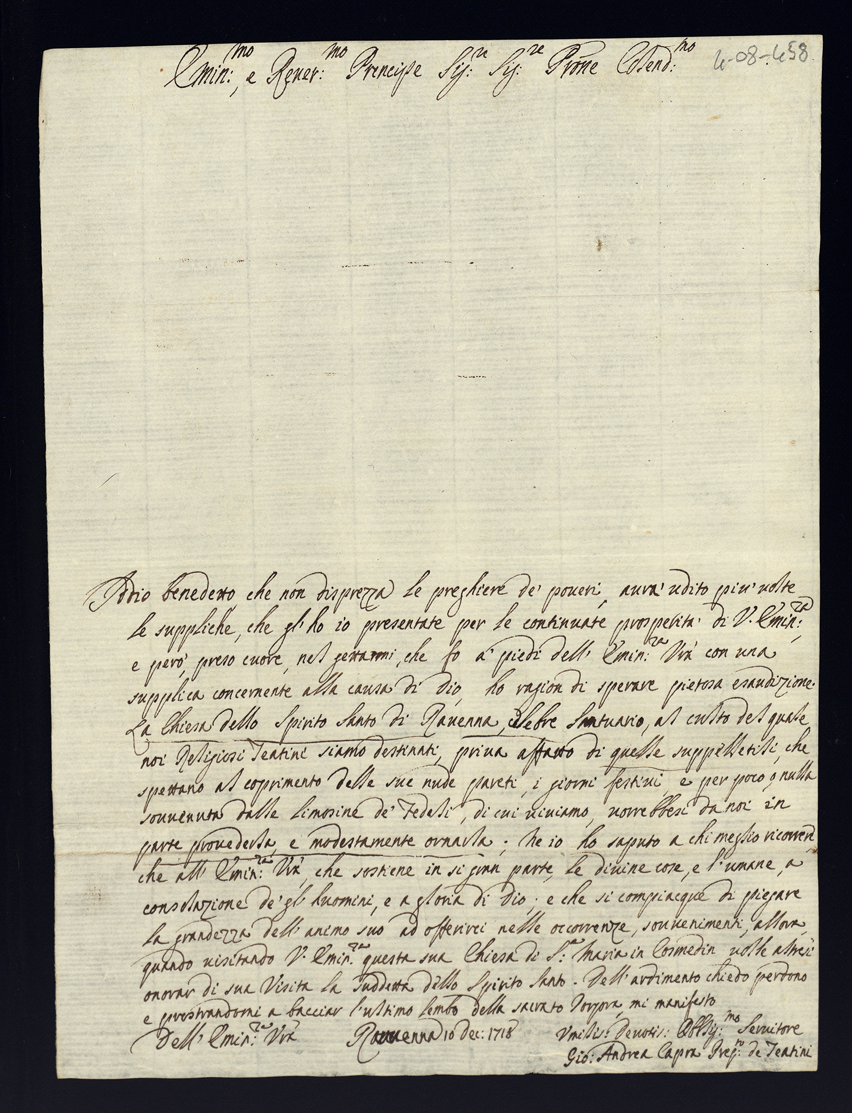 Emin:mo, e Rever:mo Principe Sig:re Sig:re Prōne Colend:mo
4-08-458.
Iddio benedetto che non disprezza le preghiere de' poveri, aurà udito più volte
le suppliche, che gl'ho io presentate per le continuate prosperità di V. Emin:za,
e però preso cuore, nel gettarmi, che fo a' piedi dell' Emin:za Vrā con una
supplica concernente alla causa di Dio, ho ragion di sperare pietosa esaudizione.
La Chiesa dello Spirito Santo di Ravenna, celebre Santuario, al culto del quale
noi Religiosi Teatini siamo destinati, priva affatto di quelle suppelletili, che
spettano al coprimento delle sue nude pareti, i giorni festivi, e per poco, o nulla
sovvenuta dalle limosine de' Fedeli, di cui viviamo, vorrebbesi da noi in
parte provederla, e modestamente ornarla; Ne io ho saputo a chi meglio ricorrere
che all' Emin:za Vrā, che sostiene in sì gran parte, le divine cose, e l'umane, a
consolazione de' gl' huomini, e a gloria di Dio; e che si compiacque di piegare
la grandezza dell' animo suo ad offerirci nelle occorrenze, sovvenimenti, allora,
quando visitando V. Emin:za questa sua Chiesa di S:ta Maria in Cosmedin volle altresì
onorar di sua Visita la suddetta dello Spirito Santo. Dell' ardimento chiedo perdono
e prostrandomi a bacciar l'ultimo lembo della sacrata Porpora, mi manifesto
Dell' Emin:za Vrā Ravenna 10 Dec: 1718 Vmilis: Devotis: Obblig:mo Servitore
Gio: Andrea Capra Prep:to de Teatini